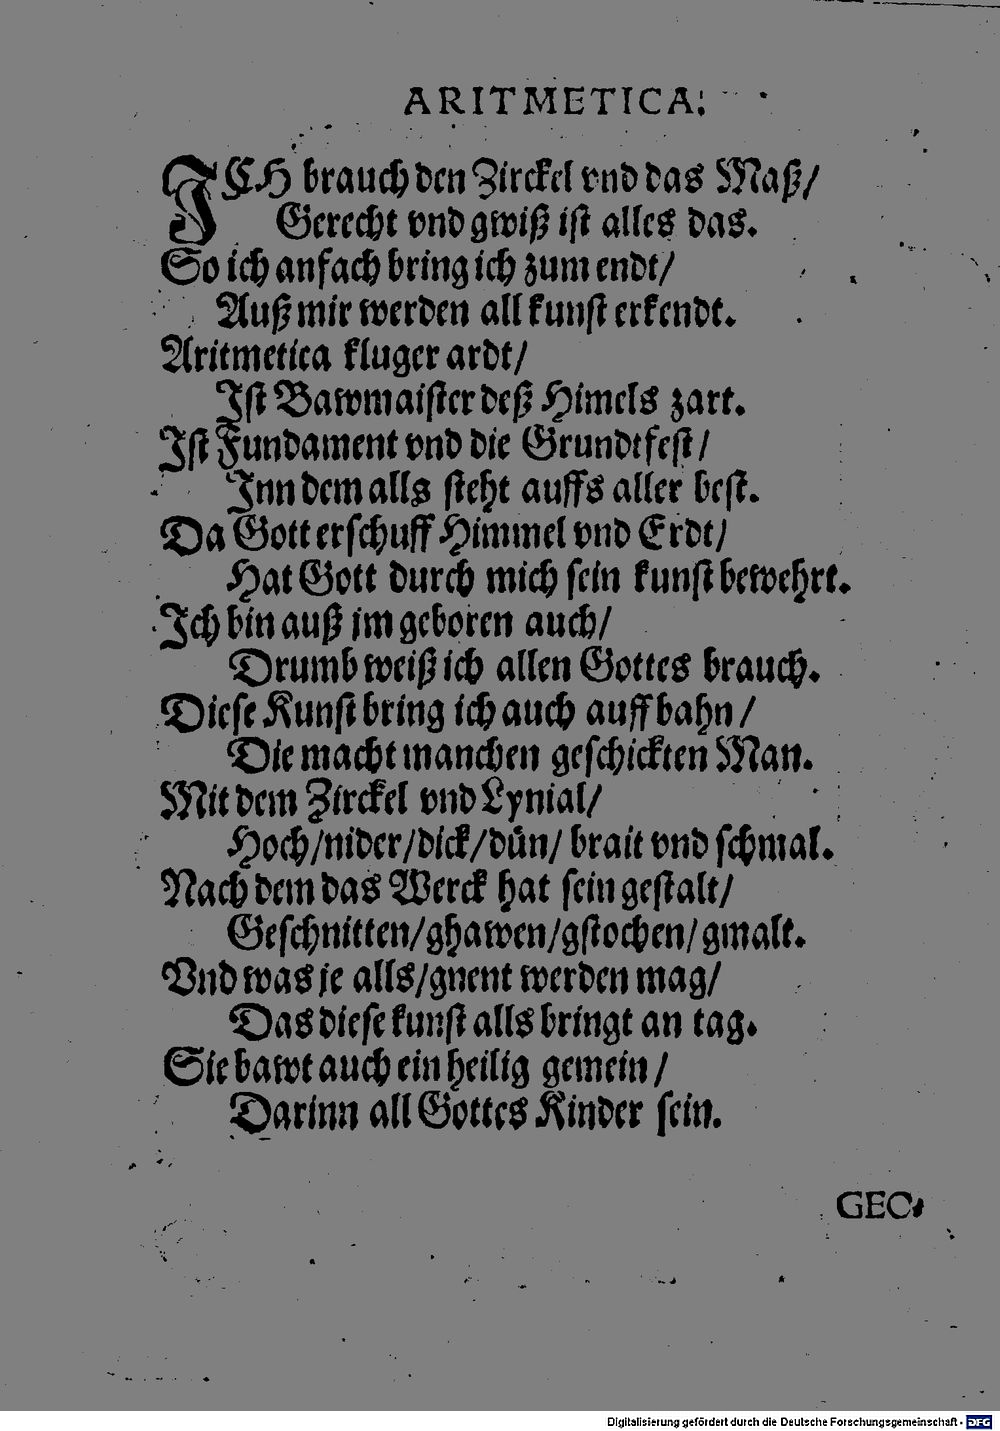 ARITMETICA.
ICH brauch den Zirckel vnd das Maß/
Gerecht vnd gwiß ist alles das.
So ich anfach bring ich zum endt/
Auß mir werden all kunst erkendt.
Aritmetica kluger ardt/
Ist Bawmaister deß Himels zart.
Ist Fundament vnd die Grundtfest/
Inn dem alls steht auffs aller best.
Da Gott erschuff Himmel vnd Erdt/
Hat Gott durch mich sein kunst bewehrt.
Ich bin auß jm geboren auch/
Drumb weiß ich allen Gottes brauch.
Diese Kunst bring ich auch auff bahn/
Die macht manchen geschickten Man.
Mit dem Zirckel vnd Lynial/
Hoch/nider/dick/dün/ brait vnd schmal.
Nach dem das Werck hat sein gestalt/
Geschnitten/ghawen/gstochen/gmalt.
Vnd was je alls/gnent werden mag/
Das diese kunst alls bringt an tag.
Sie bawt auch ein heilig gemein/
Darinn all Gottes Kinder sein.
GEO-
Digitalisierung gefördert durch die Deutsche Forschungsgemeinschaft - DFG